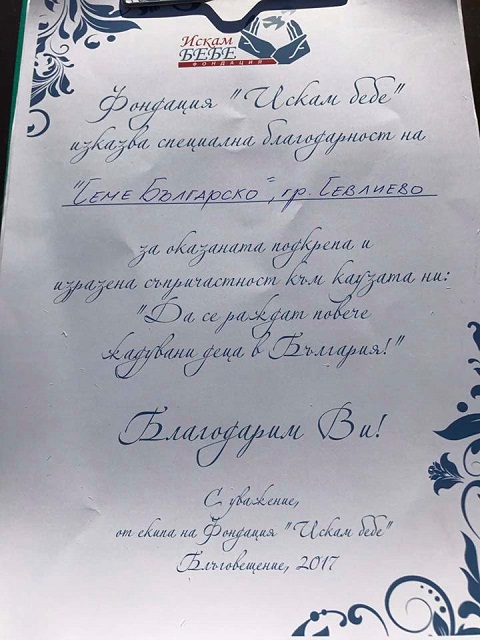 Искам
БЕБЕ
ФОНДАЦИЯ
Фондация "Искам бебе"
изказва специална благодарност на
"СЕМЕ БЪЛГАРСКО", гр. СЕВЛИЕВО
за оказаната подкрепа и
изразена съпричастност към каузата ни:
"Да се раждат повече
жадувани деца в България!"
Благодарим Ви!
С уважение,
от екипа на Фондация "Искам бебе"
Блъговещение, 2017